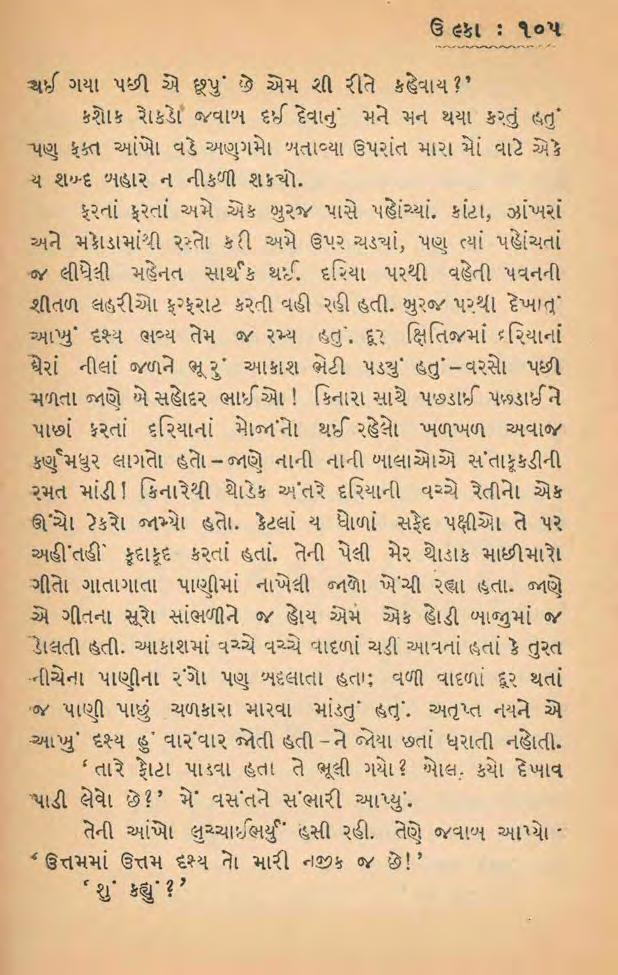 ઉલ્કા : ૧૦૫
થઈ ગયા પછી એ છૂપું છે એમ શી રીતે કહેવાય?’
કશોક રોકડો જવાબ દઈ દેવાનું મને મન થયા કરતું હતું
પણ ફક્ત આંખો વડે અણગમો બતાવ્યા ઉપરાંત મારા મોં વાટે એકે
ય શબ્દ બહાર ન નીકળી શકયો.
ફરતાં ફરતાં અમે એક બુરજ પાસે પહોંચ્યાં. કાંટા, ઝાંખરાં
અને મકોડામાંથી રસ્તો કરી અમે ઉપર ચડયાં, પણ ત્યાં પહોંચતાં
જ લીધેલી મહેનત સાર્થક થઈ. દરિયા પરથી વહેતી પવનની
શીતળ લહરીઓ ફરફરાટ કરતી વહી રહી હતી. બુરજ પરથી દેખાતું
આખું દશ્ય ભવ્ય તેમ જ રમ્ય હતું. દૂર ક્ષિતિજમાં દરિયાનાં
ઘેરાં નીલાં જળને ભૂરું આકાશ ભેટી પડયું હતું – વરસો પછી
મળતા જાણે બે સહોદર ભાઈઓ ! કિનારા સાથે પછડાઈ પછડાઈને
પાછાં ફરતાં દરિયાનાં મોજાંનો થઈ રહેલો ખળખળ અવાજ
કર્ણમધુર લાગતો હતો – જાણે નાની નાની બાલાઓએ સંતાકૂકડીની
રમત માંડી! કિનારેથી થોડેક અંતરે દરિયાની વચ્ચે રેતીનો એક
ઊંચો ટેકરો જામ્યો હતો. કેટલાં ય ધોળાં સફેદ પક્ષીઓ તે પર
અહીંતહીં કૂદાકૂદ કરતાં હતાં. તેની પેલી મેર થોડાક માછીમારો
ગીતો ગાતાગાતા પાણીમાં નાખેલી જાળો ખેંચી રહ્યા હતા. જાણે
એ ગીતના સૂરો સાંભળીને જ હોય એમ એક હોડી બાજુમાં જ
ડોલતી હતી. આકાશમાં વચ્ચે વચ્ચે વાદળાં ચડી આવતાં હતાં કે તુરત
નીચેના પાણીના રંગો પણ બદલાતા હતા; વળી વાદળાં દૂર થતાં
જ પાણી પાછું ચળકારા મારવા માંડતું હતું. અતૃપ્ત નયને એ
આખું દશ્ય હું વારંવાર જોતી હતી – ને જોયા છતાં ધરાતી નહોતી.
‘તારે ફોટા પાડવા હતા તે ભૂલી ગયો? બોલ. કયો દેખાવ
પાડી લેવો છે?’ મેં વસંતને સંભારી આપ્યું.
તેની આંખો લુચ્ચાઈભર્યું હસી રહી. તેણે જવાબ આપ્યો -
‘ઉત્તમમાં ઉત્તમ દશ્ય તો મારી નજીક જ છે!’
‘શું કહ્યું?’